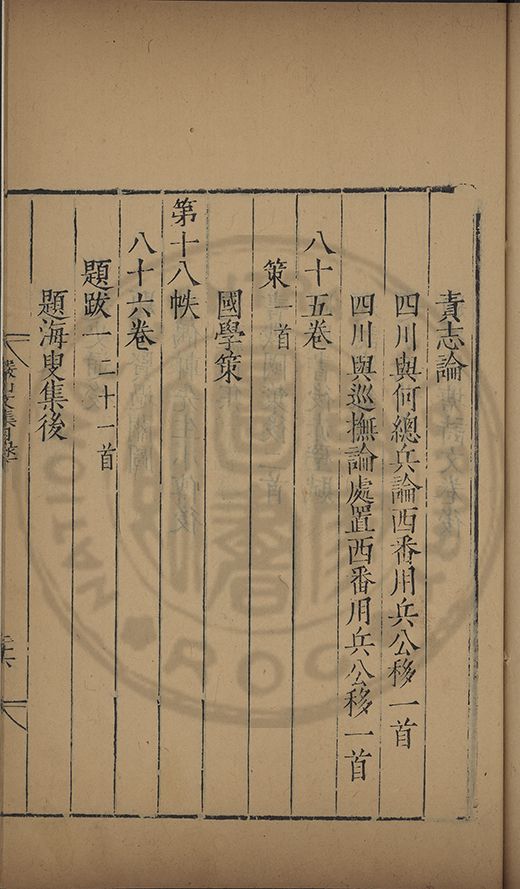 責志論
四川與何總兵論西番用兵公移一首
四川與巡撫論處置西番用兵公移一首
八十五卷
策一首
國學策
第十八帙
八十六卷
題跋一二十一首
題海叟集後